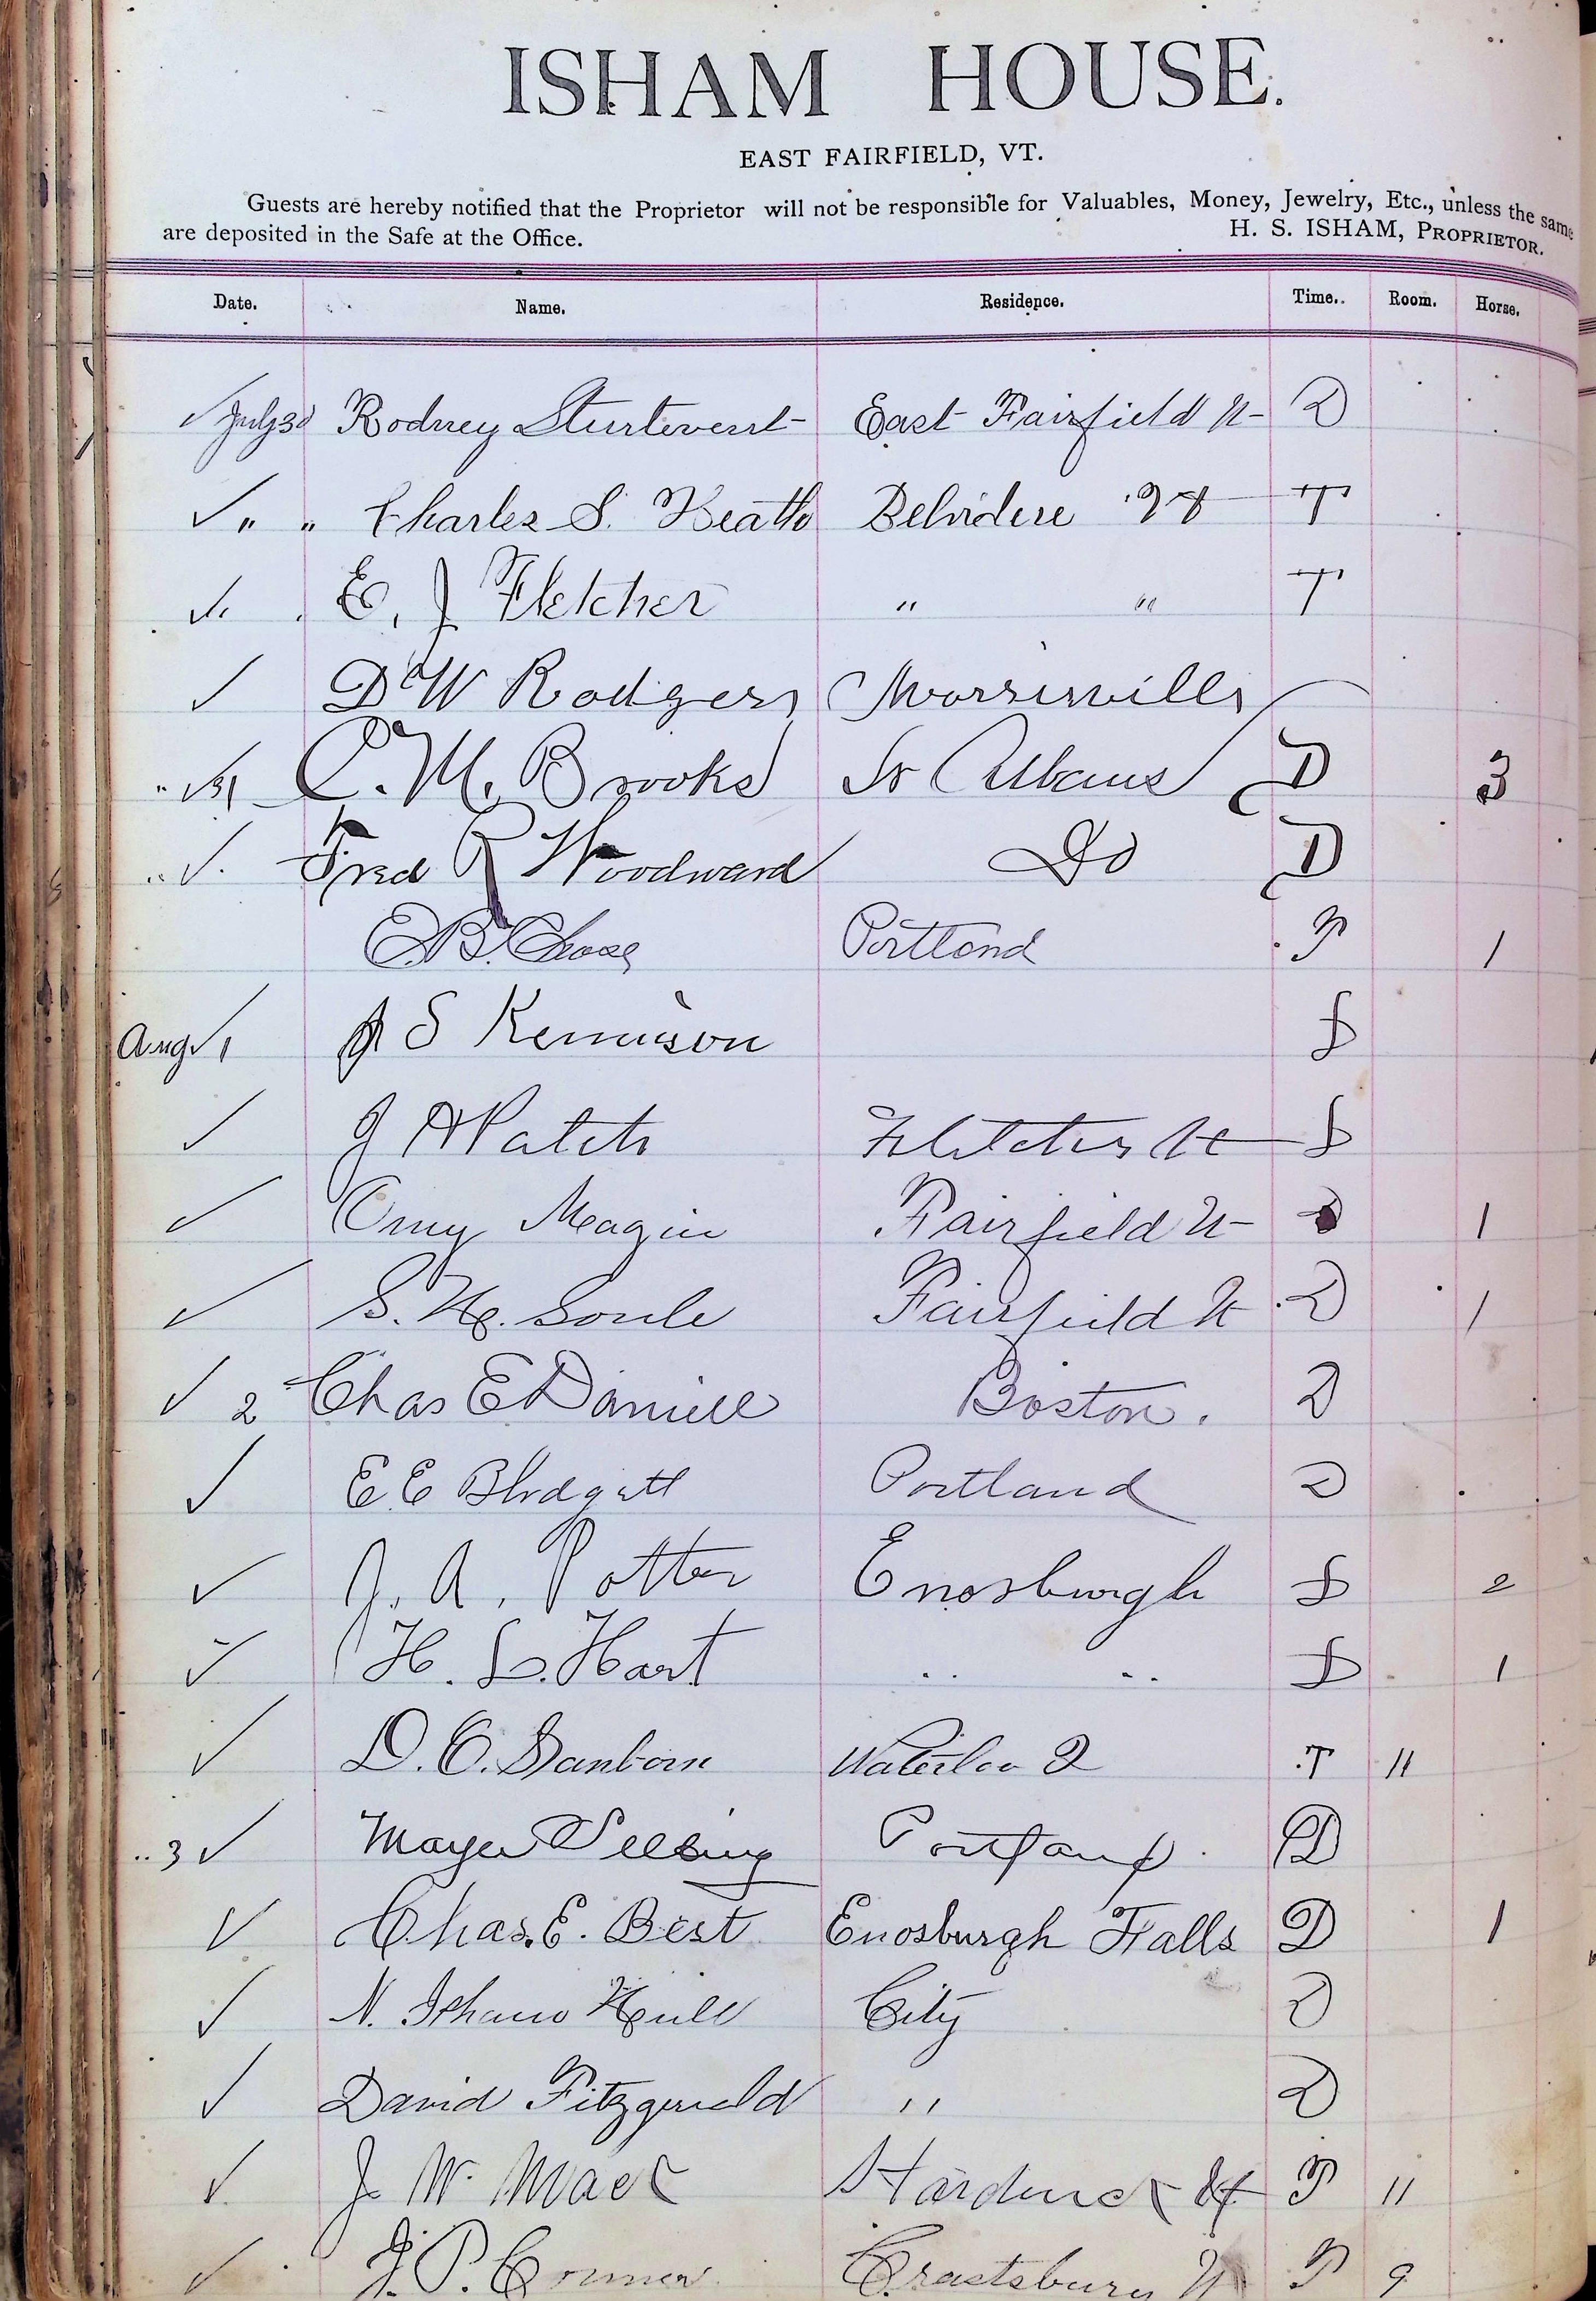 ISHAM HOUSE.
EAST FAIRFIELD, VT.
Guests are hereby notified that the Proprietor will not be responsible for Valuables, Money, Jewelry, Etc., unless the same
are deposited in the Safe at the Office. H. S. ISHAM, PROPRIETOR.
Date. Name. Residence. Time. Room. Horse.
✓ July 30 Rodney Sturtevent East Fairfield Vt D
✓ " " Charles S. Heath Belvidere Vt T
✓ " E. J. Fletcher " " T
✓ D W Rodgers Morrisville
" ✓ 31 C. M. Brooks St Albans D 3
" ✓ Fred R Woodward Do D
E. B. Chase Portland T 1
Aug ✓ 1 J S Kennison D
✓ J A Patch Fletcher Vt D
✓ Magin Fairfield Vt D 1
✓ S. H. Soule Fairfield Vt D 1
✓ 2 Chas E Daniell Boston. D
✓ E E Blodgett Portland D
✓ J. A. Potter Enosburgh D 2
✓ H. L. Hart " " D 1
✓ D. C. Sanborn Waterloo Q T 11
" 3 ✓ Mayer Portland D
✓ Chas. E. Best Enosburgh Falls D 1
✓ N. Isham City D
✓ David Fitzgerald " D
✓ J. W. Mack Hardwick Vt T 11
✓ J. P. Conner Craftsbury Vt T 9